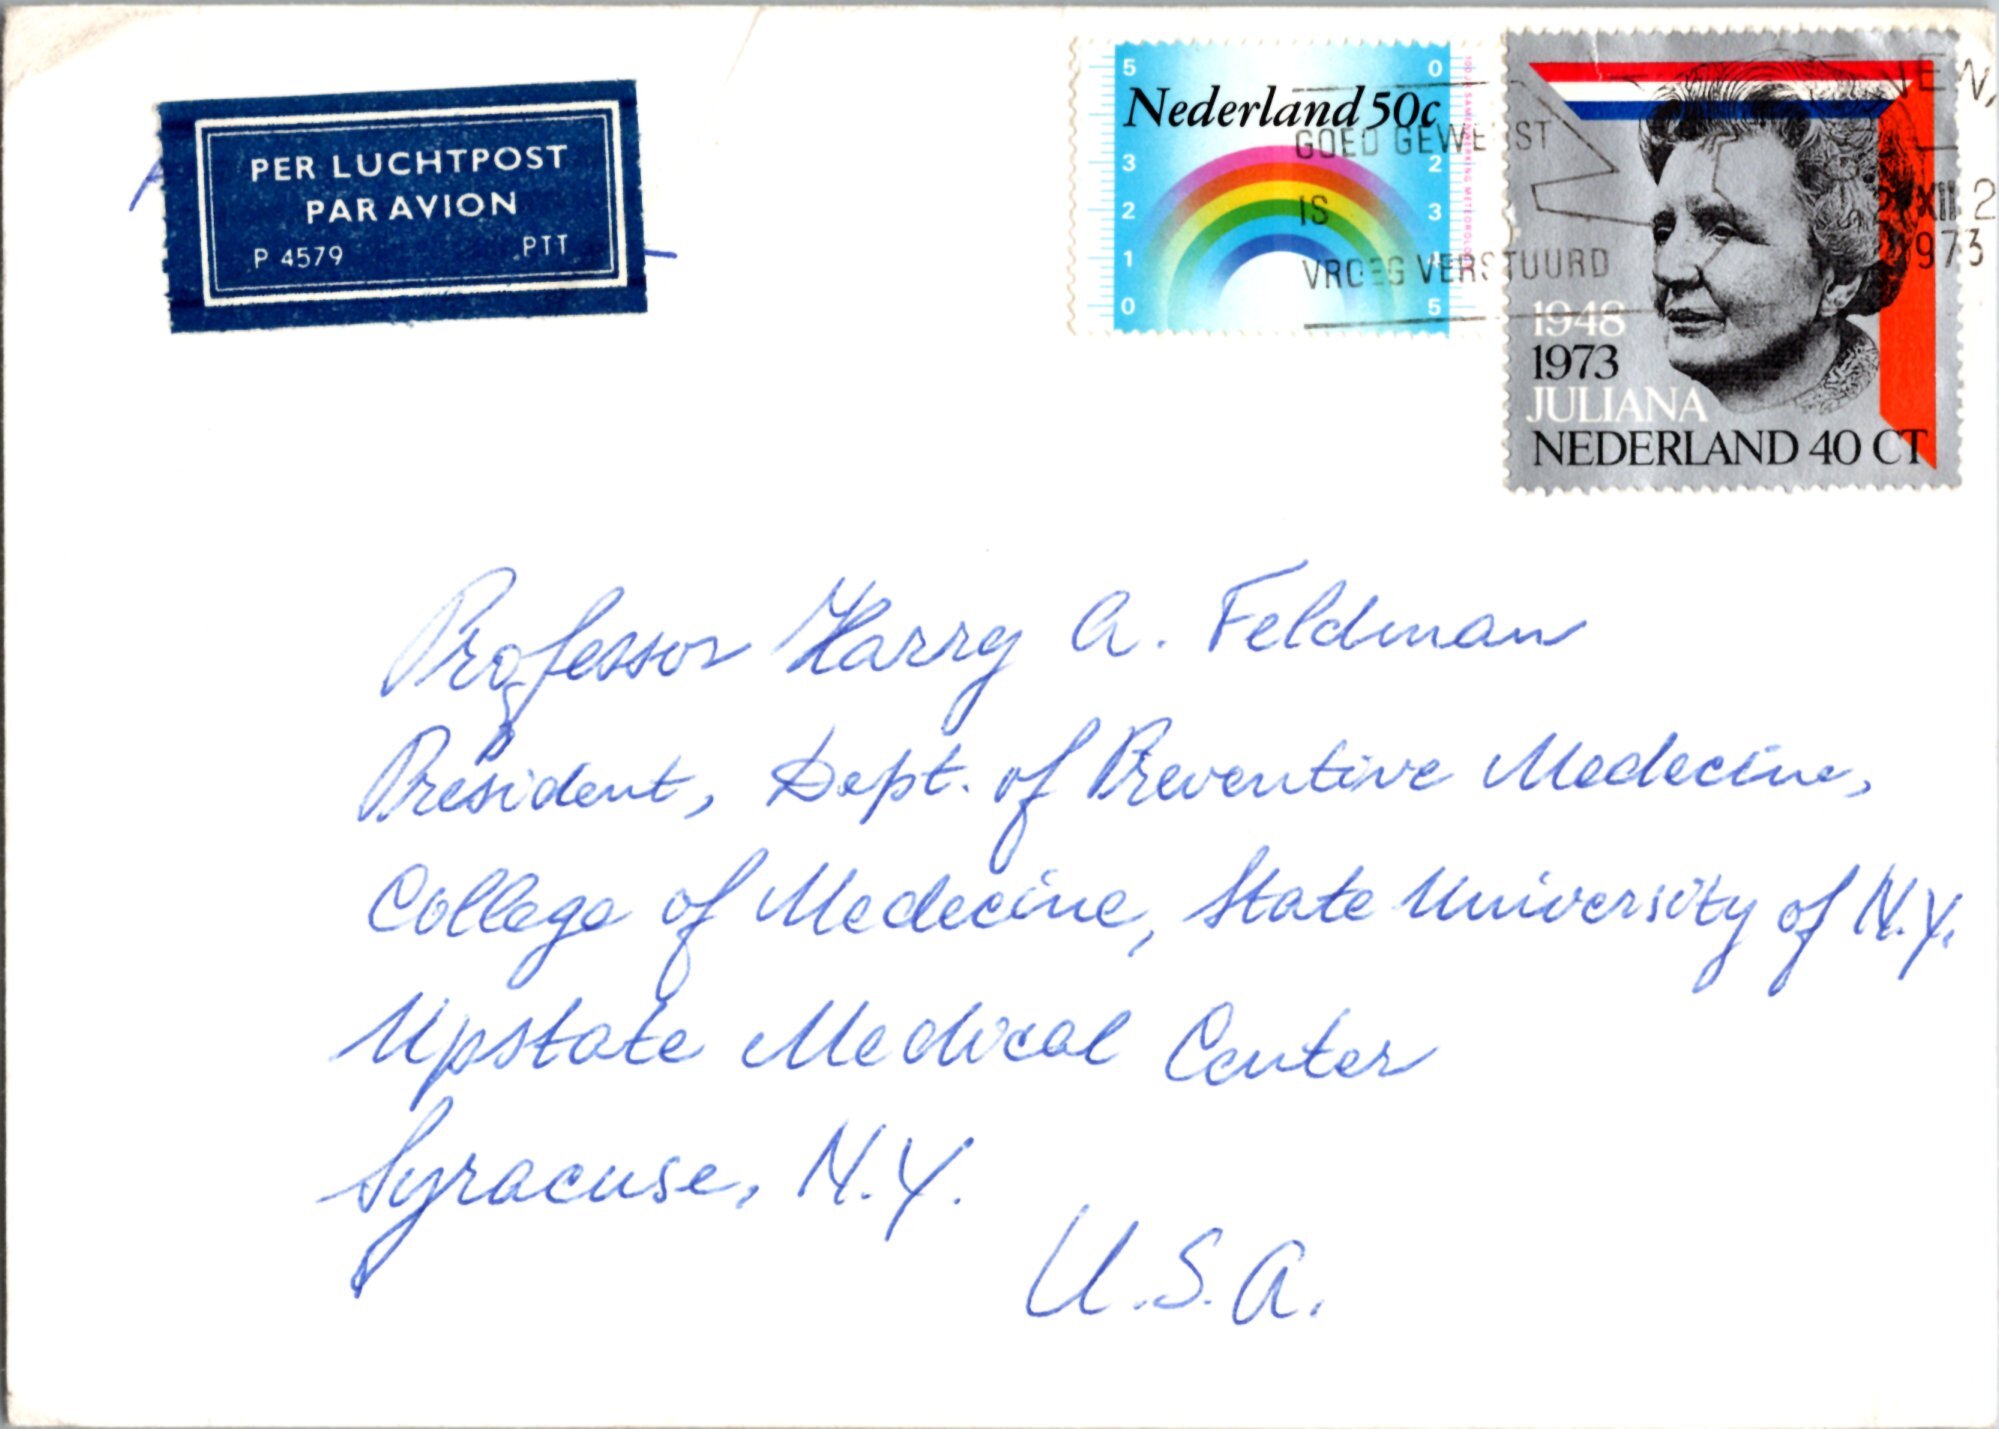 PER LUCHTPOST
PAR AVION
P 4579 PTT
Nederland 50c
5 0
3 2
2 3
1 4
0 5
GOED GEWENST
IS
VROEG VERSTUURD
XII 2
1973
1948
1973
JULIANA
NEDERLAND 40 CT
Professor Harry A. Feldman
President, Dept. of Preventive Medecine,
College of Medecine, State University of N.Y.
Upstate Medical Center
Syracuse, N.Y.
U.S.A.